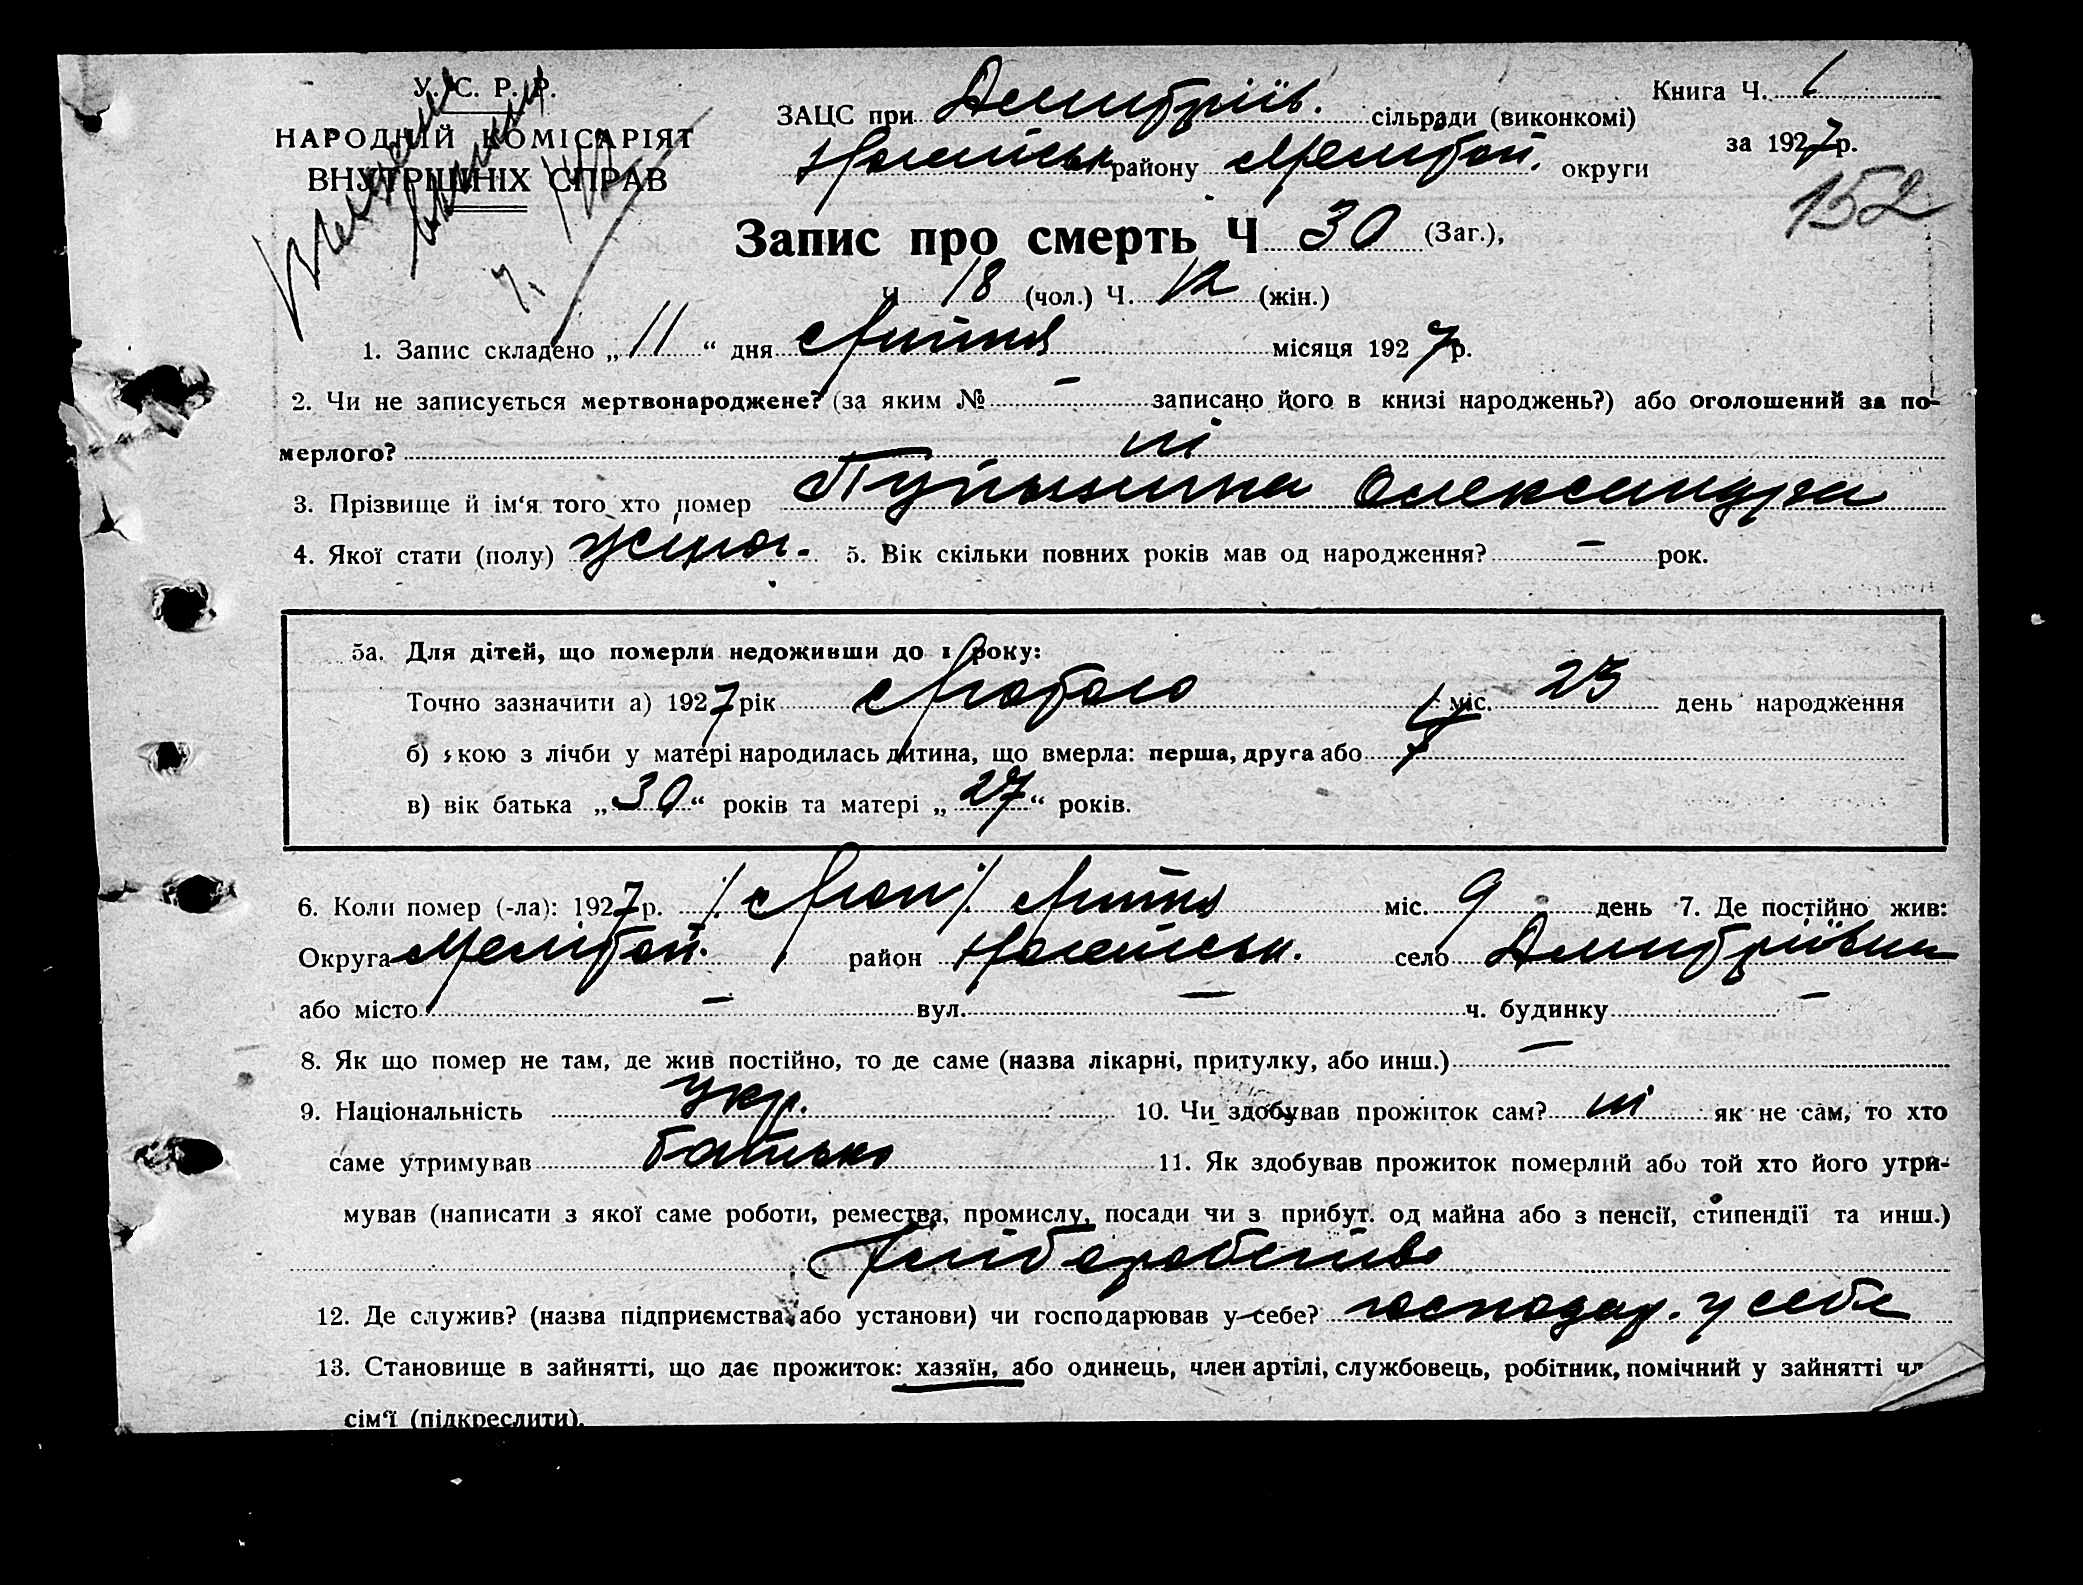 У. С. Р. Р.
НАРОДНІЙ КОМІСАРІЯТ
ВНУТРІШНІХ СПРАВ
ЗАЦС при Дмитріїв. сільради (виконкомі)
Ногайськ району Мелітоп. округи
Книга Ч. 1
за 1927 р.
152
Запис про смерть Ч 30 (Заг.),
Ч 18 (чол.) Ч. 12 (жін.)
1. Запис складено „ 11 “ дня Липня місяця 1927 р.
2. Чи не записується мертвонароджене? (за яким № – записано його в книзі народжень?) або оголошений за по-
мерлого? ні
3. Прізвище й ім‘я того хто помер Олександра
4. Якої стати (полу) жіноч. 5. Вік скільки повних років мав од народження? – рок.
5а. Для дітей, що померли недоживши до 1 року:
Точно зазначити а) 1927 рік Лютого міс. 23 день народження
б) якою з лічби у матері народилась дитина, що вмерла: перша, друга або
в) вік батька „ 30 “ років та матері „ 27 “ років.
6. Коли помер (-ла): 1927 р. Липня міс. 9 день 7. Де постійно жив:
Округа Мелітоп. район Ногайськ. село Дмитріївка
або місто – вул. – ч. будинку –
8. Як що помер не там, де жив постійно, то де саме (назва лікарні, притулку, або инш.) –
9. Національність Укр. 10. Чи здобував прожиток сам? ні як не сам, то хто
саме утримував батько 11. Як здобував прожиток померлий або той хто його утри-
мував (написати з якої саме роботи, ремества, промислу, посади чи з прибут. од майна або з пенсії, стипендії та инш.)
Хліборобство
12. Де служив? (назва підприємства або установи) чи господарював у-себе? господар. у себе
13. Становище в зайнятті, що дає прожиток: хазяїн, або одинець, член артілі, службовець, робітник, помічний у зайнятті чл
сім‘ї (підкреслити).